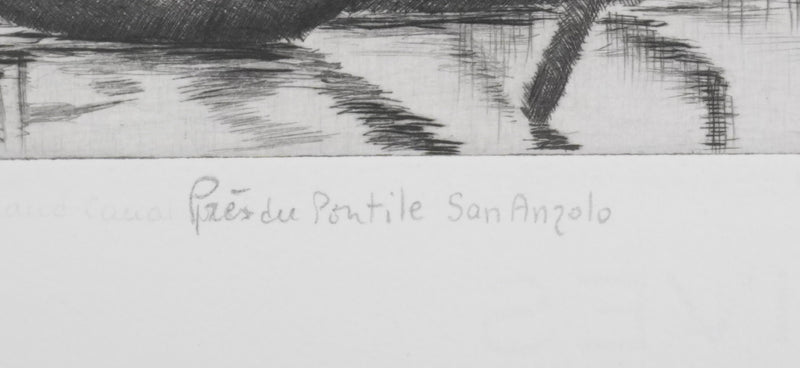 Canal Près du Pontile San Anzolo